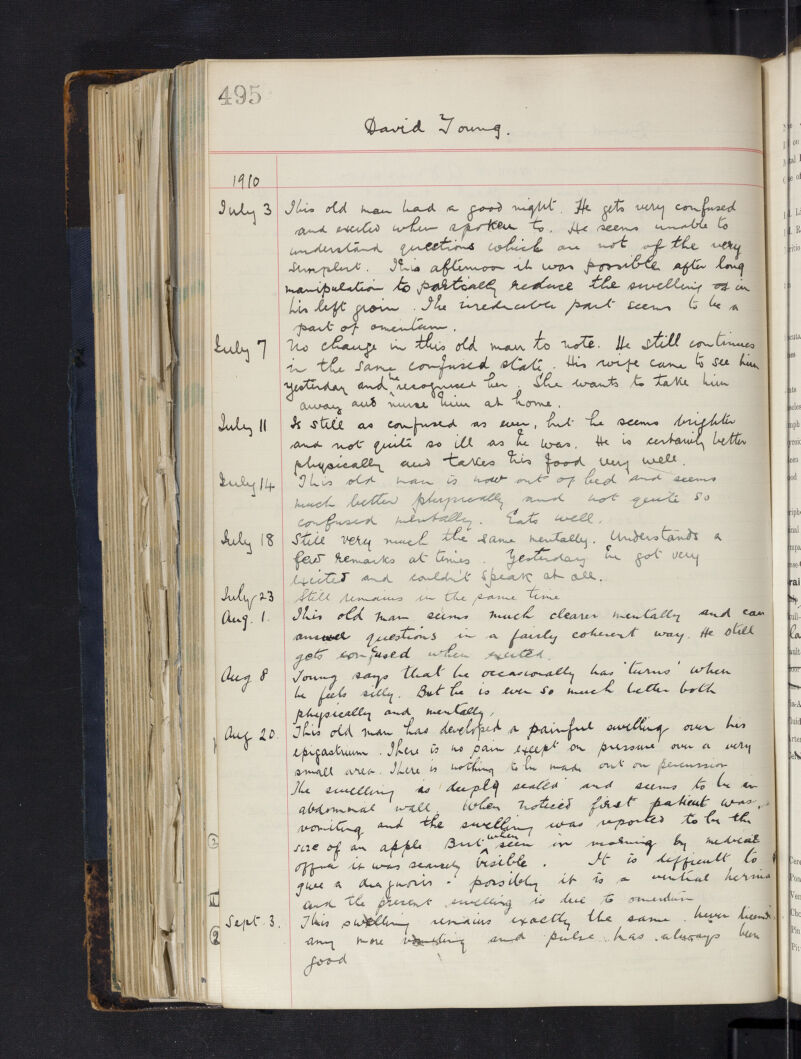 495
David Young.
1910
July 3 This old man had a good night. He gets very confused
and excited when spoken to. He seems unable to
understand questions which are not of the very
simplest. This afternoon it was possible after long
manipulation to partially reduce the swelling in
his left groin. The irreducible part seems to be a
part of omentum.
July 7 No change in this old man to note. He still continues
in the same confused state. His wife came to see him
yesterday and he recognised her. She wants to take him
away and nurse him at home.
July 11 Is still as confused as ever, but he seems brighter
and not quite so ill as he was. He is certainly better
physically and takes his food very well.
July 14 This old man is now out of bed and seems
much better physically and not quite so
confused mentally. Eats well.
July 18 Still very much the same mentally. Understands a
few remarks at times. Yesterday he got very
excited and couldn't speak at all.
July 23 Still remains in the same time
Aug. 1. This old man seems much clearer mentally and can
answer questions in a fairly coherent way. He still
gets confused when excited.
Aug 8 Young says that he occasionally has 'turns' when
he feels silly. But he is ever so much better both
physically and mentally.
Aug 20. This old man has developed a painful swelling over his
epigastrium. There is no pain except on pressure over a very
small area. There is nothing to be made out on percussion
The swelling is deeply seated and seems to be in
abdominal wall. When noticed first patient was
vomiting and the swelling was reported to be the
size of an apple But when seen in morning by medical
officer it was scarcely visible. It is difficult to
give a diagnosis - possibly it is a ventral hernia
and the present swelling is due to omentum
Sept. 3. This swelling remains exactly the same. Never
any more and pulse has always been
good